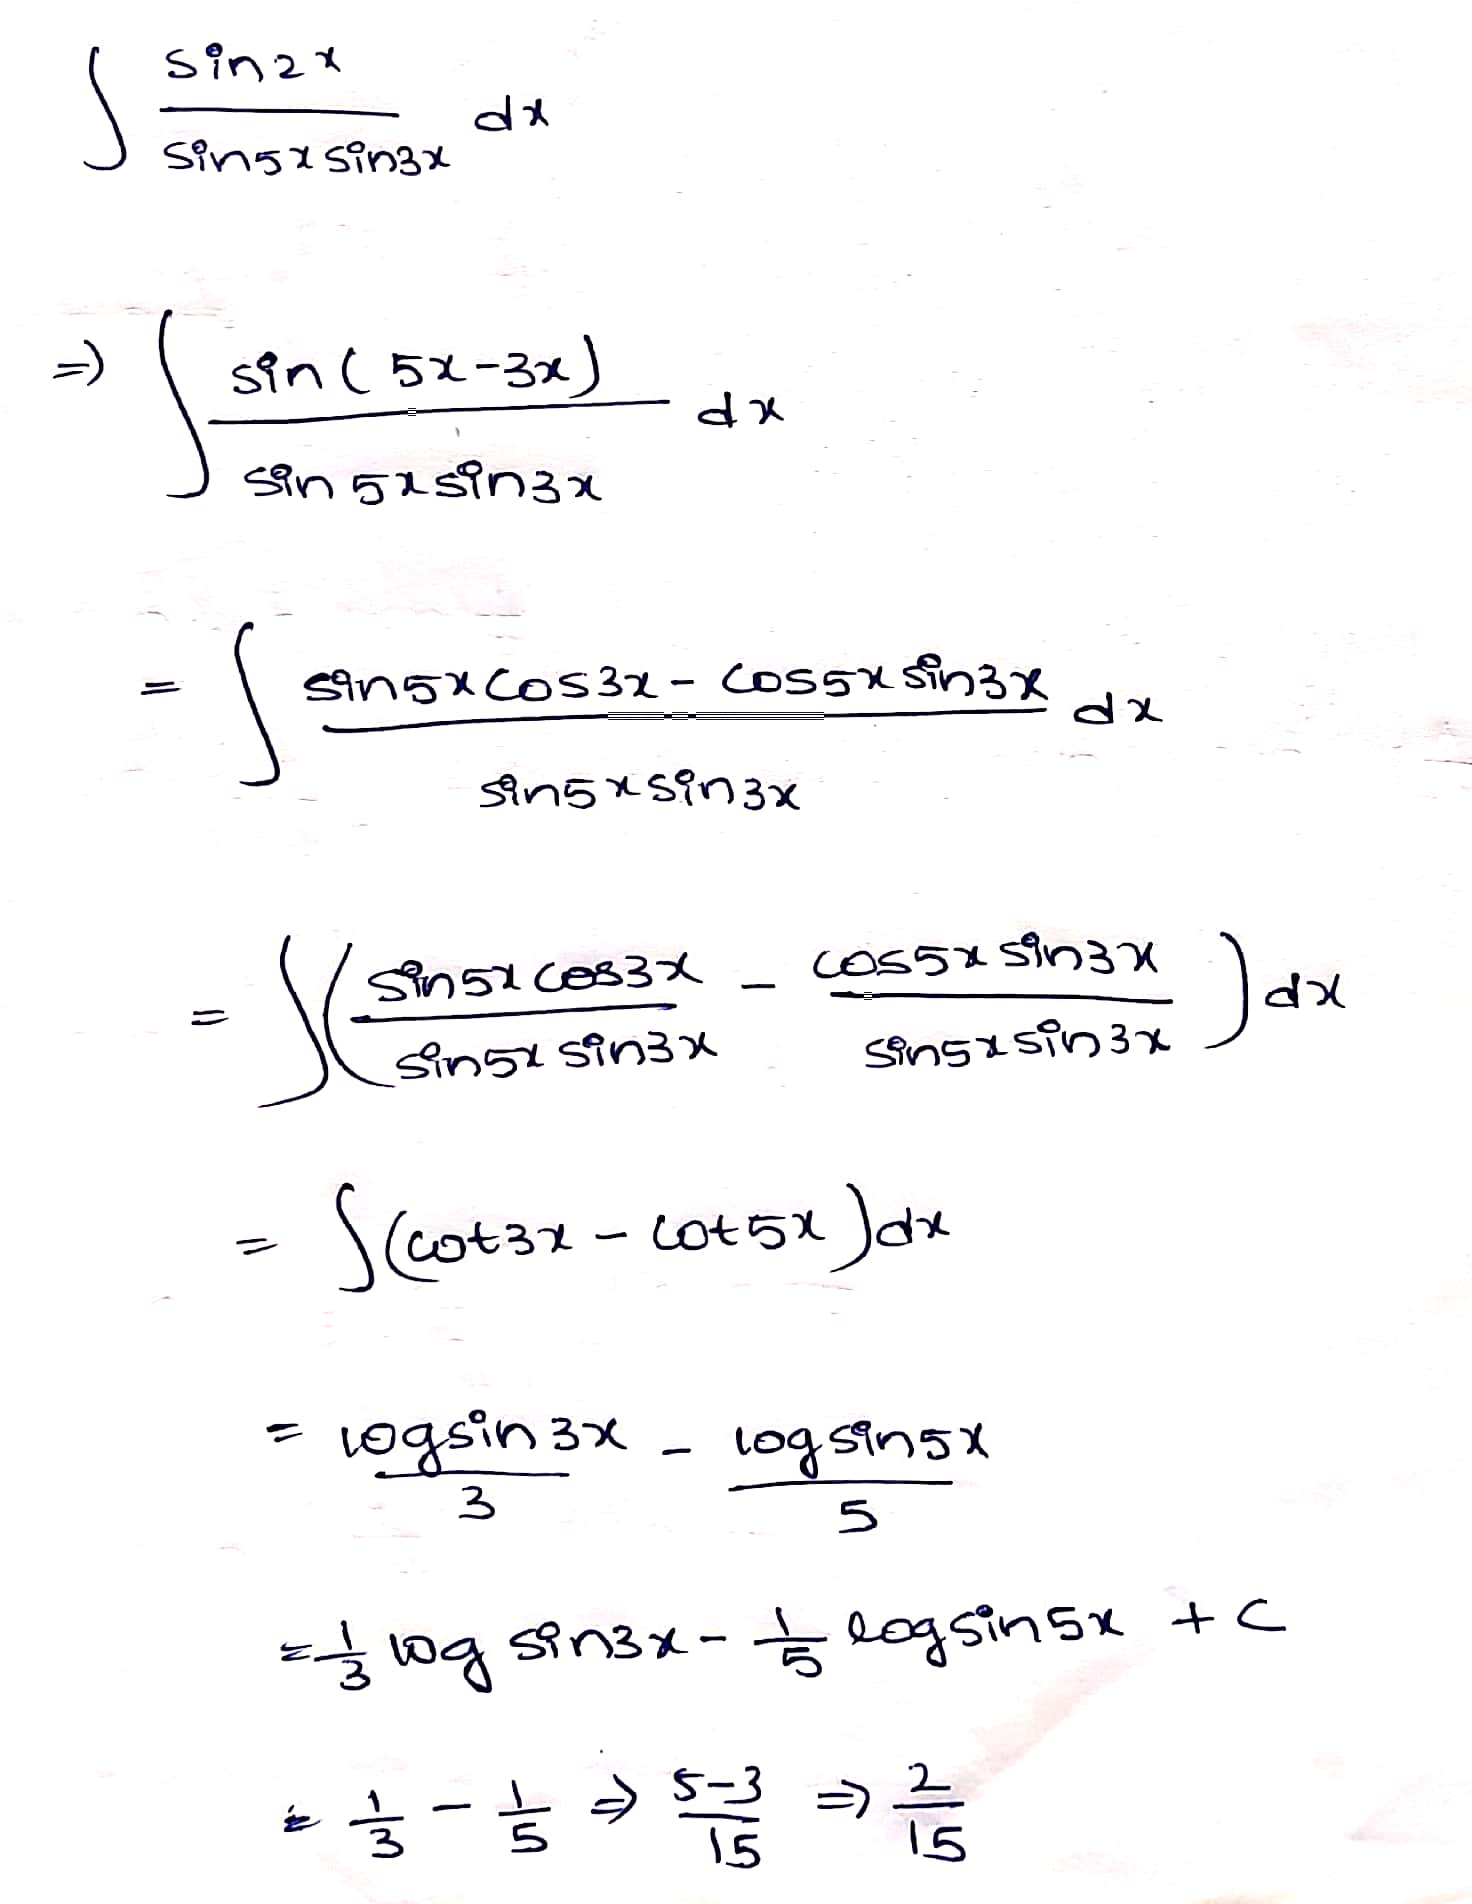 ∫ sin2x / sin5x sin3x dx
=) ∫ sin(5x-3x) / sin5x sin3x dx
= ∫ sin5x cos3x - cos5x sin3x / sin5x sin3x dx
= ∫( sin5x cos3x / sin5x sin3x - cos5x sin3x / sin5x sin3x ) dx
= ∫(cot3x - cot5x)dx
= logsin3x / 3 - logsin5x / 5
= 1/3 log sin3x - 1/5 logsin5x + c
= 1/3 - 1/5 => 5-3 / 15 => 2/15